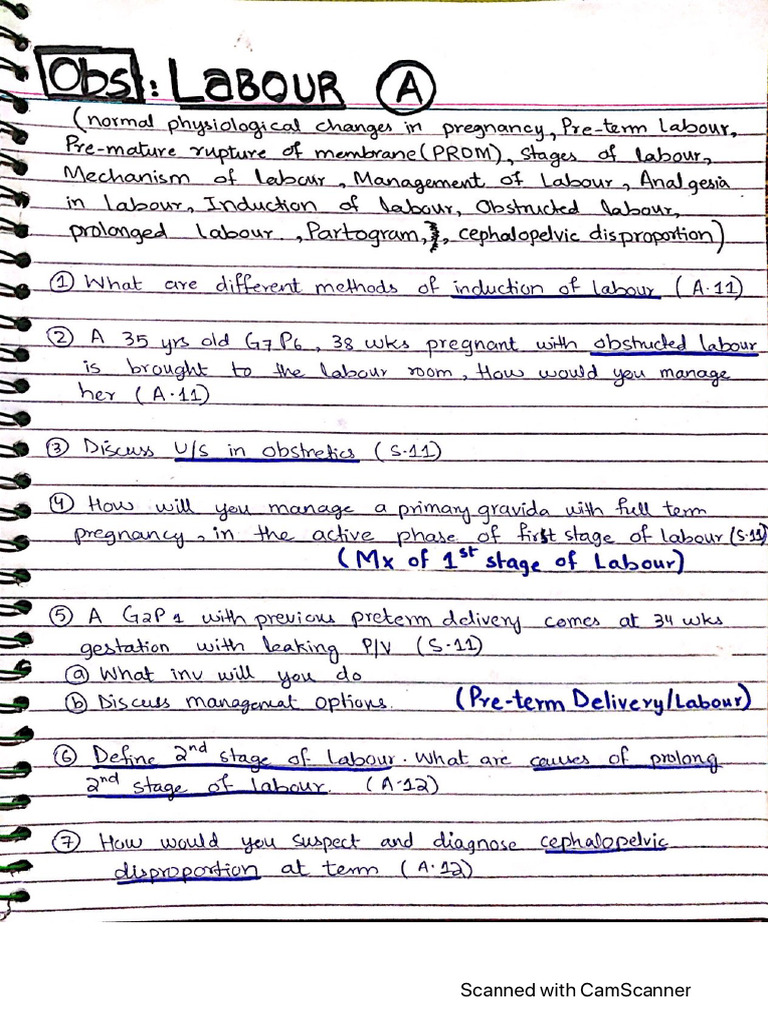 Obs: LABOUR A
(normal physiological changes in pregnancy, Pre-term Labour,
Pre-mature rupture of membrane (PROM), stages of labour,
Mechanism of labour, Management of Labour, Analgesia
in Labour, Induction of labour, Obstructed labour,
prolonged labour, Partogram, , cephalopelvic disproportion)
① What are different methods of induction of labour (A.11)
② A 35 yrs old G7P6, 38 wks pregnant with obstructed labour
is brought to the labour room, How would you manage
her (A.11)
③ Discuss U/S in obstretics (S.11)
④ How will you manage a primary gravida with full term
pregnancy, in the active phase of first stage of labour (S.11)
(Mx of 1st stage of Labour)
⑤ A G2P1 with previous preterm delivery comes at 34 wks
gestation with leaking P/V (S.11)
ⓐ What inv will you do
ⓑ Discuss management options. (Pre-term Delivery/Labour)
⑥ Define 2nd stage of Labour. What are causes of prolong
2nd stage of labour. (A.12)
⑦ How would you suspect and diagnose cephalopelvic
disproportion at term (A.12)
Scanned with CamScanner